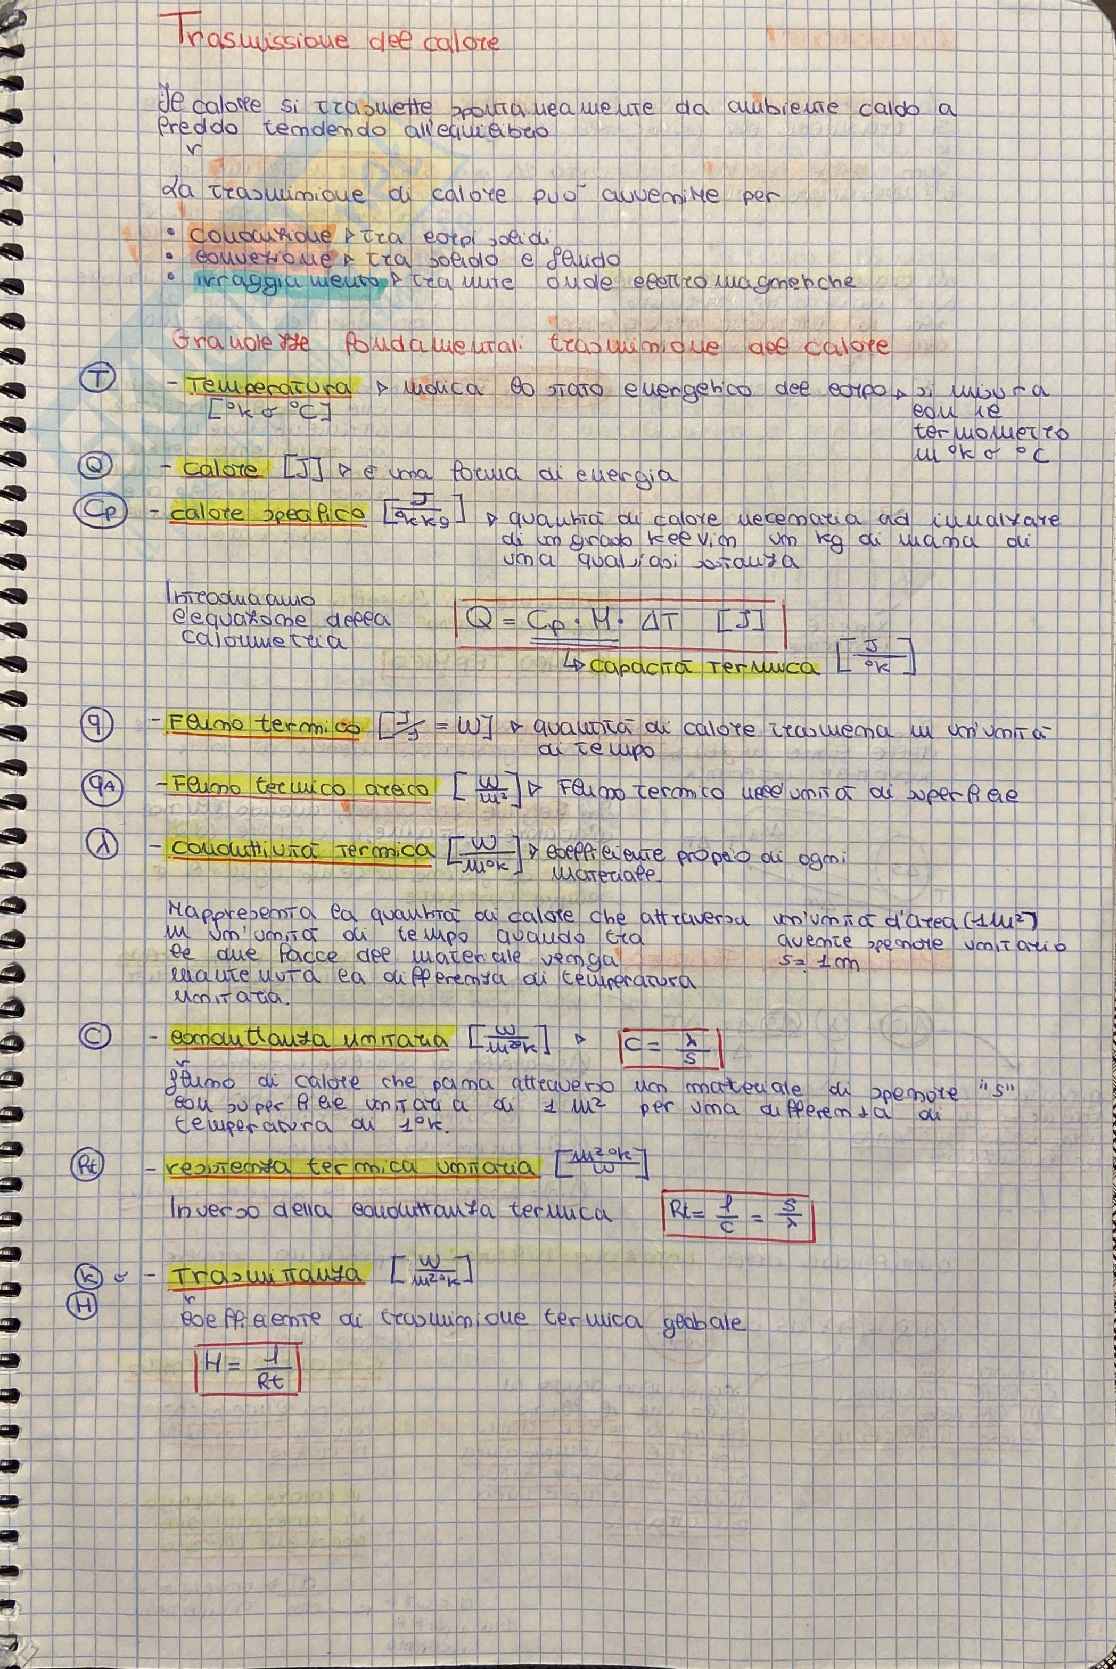 Trasmissione del calore
Il calore si trasmette spontaneamente da ambiente caldo a
freddo tendendo all'equilibrio
La trasmissione di calore può avvenire per
• conduzione ▹ tra corpi solidi
• convezione ▹ tra solido e fluido
• irraggiamento ▹ tramite onde elettromagnetiche
Grandezze fondamentali trasmissione del calore
T - Temperatura ▹ indica lo stato energetico del corpo ▹ si misura
[°K o °C] con il
termometro
in °K o °C
Q - calore [J] ▹ è una forma di energia
Cp - calore specifico [J/°K kg] ▹ quantità di calore necessaria ad innalzare
di un grado Kelvin un kg di massa di
una qualsiasi sostanza
Introduciamo
l'equazione della
calorimetria
Q = Cp · M · ΔT [J]
↳ capacità termica [J/°K]
q - Flusso termico [J/s = W] ▹ quantità di calore trasmessa in un'unità
di tempo
qA - Flusso termico areico [W/m²] ▹ Flusso termico nell'unità di superficie
λ - conduttività termica [W/m°K] ▹ coefficiente proprio di ogni
materiale
Rappresenta la quantità di calore che attraversa un'unità d'area (1m²)
in un'unità di tempo quando tra avente spessore unitario
le due facce del materiale venga s=1m
mantenuta la differenza di temperatura
unitaria.
C - conduttanza unitaria [W/m²°K] ▹ C = λ/s
flusso di calore che passa attraverso un materiale di spessore "s"
con superficie unitaria di 1 m² per una differenza di
temperatura di 1°K.
Rt - resistenza termica unitaria [m²°K/W]
Inverso della conduttanza termica Rt = 1/C = s/λ
K o - Trasmittanza [W/m²°K]
H
coefficiente di trasmissione termica globale
H = 1/Rt